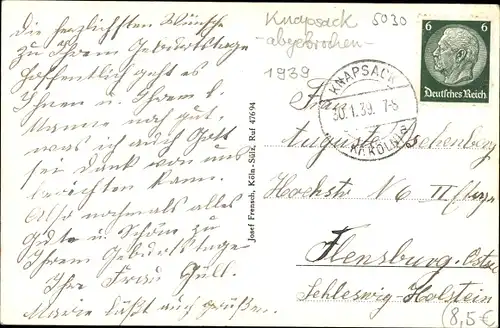 Die herzlichsten Wünsche
zu Ihrem Geburtstage
Hoffentlich geht es
Ihnen u. Ihrem l.
Manne noch gut,
was ich auch Gott
sei Dank von uns
berichten kann.
Also nochmals alles
Gute u. Schöne zu
Ihrem Geburtstage
Ihre Frau Güll.
Marie läßt auch grüßen.
Josef Frensch, Köln-Sülz, Ruf 47694
Knapsack 5030
-abgebrochen-
1939
6 6
Deutsches Reich
KNAPSACK
30.1.39. 7-8
KR. KÖLN
Frau
Auguste
Hochstr N 6 II
Flensburg
Schleswig-Holstein
(8,5€)